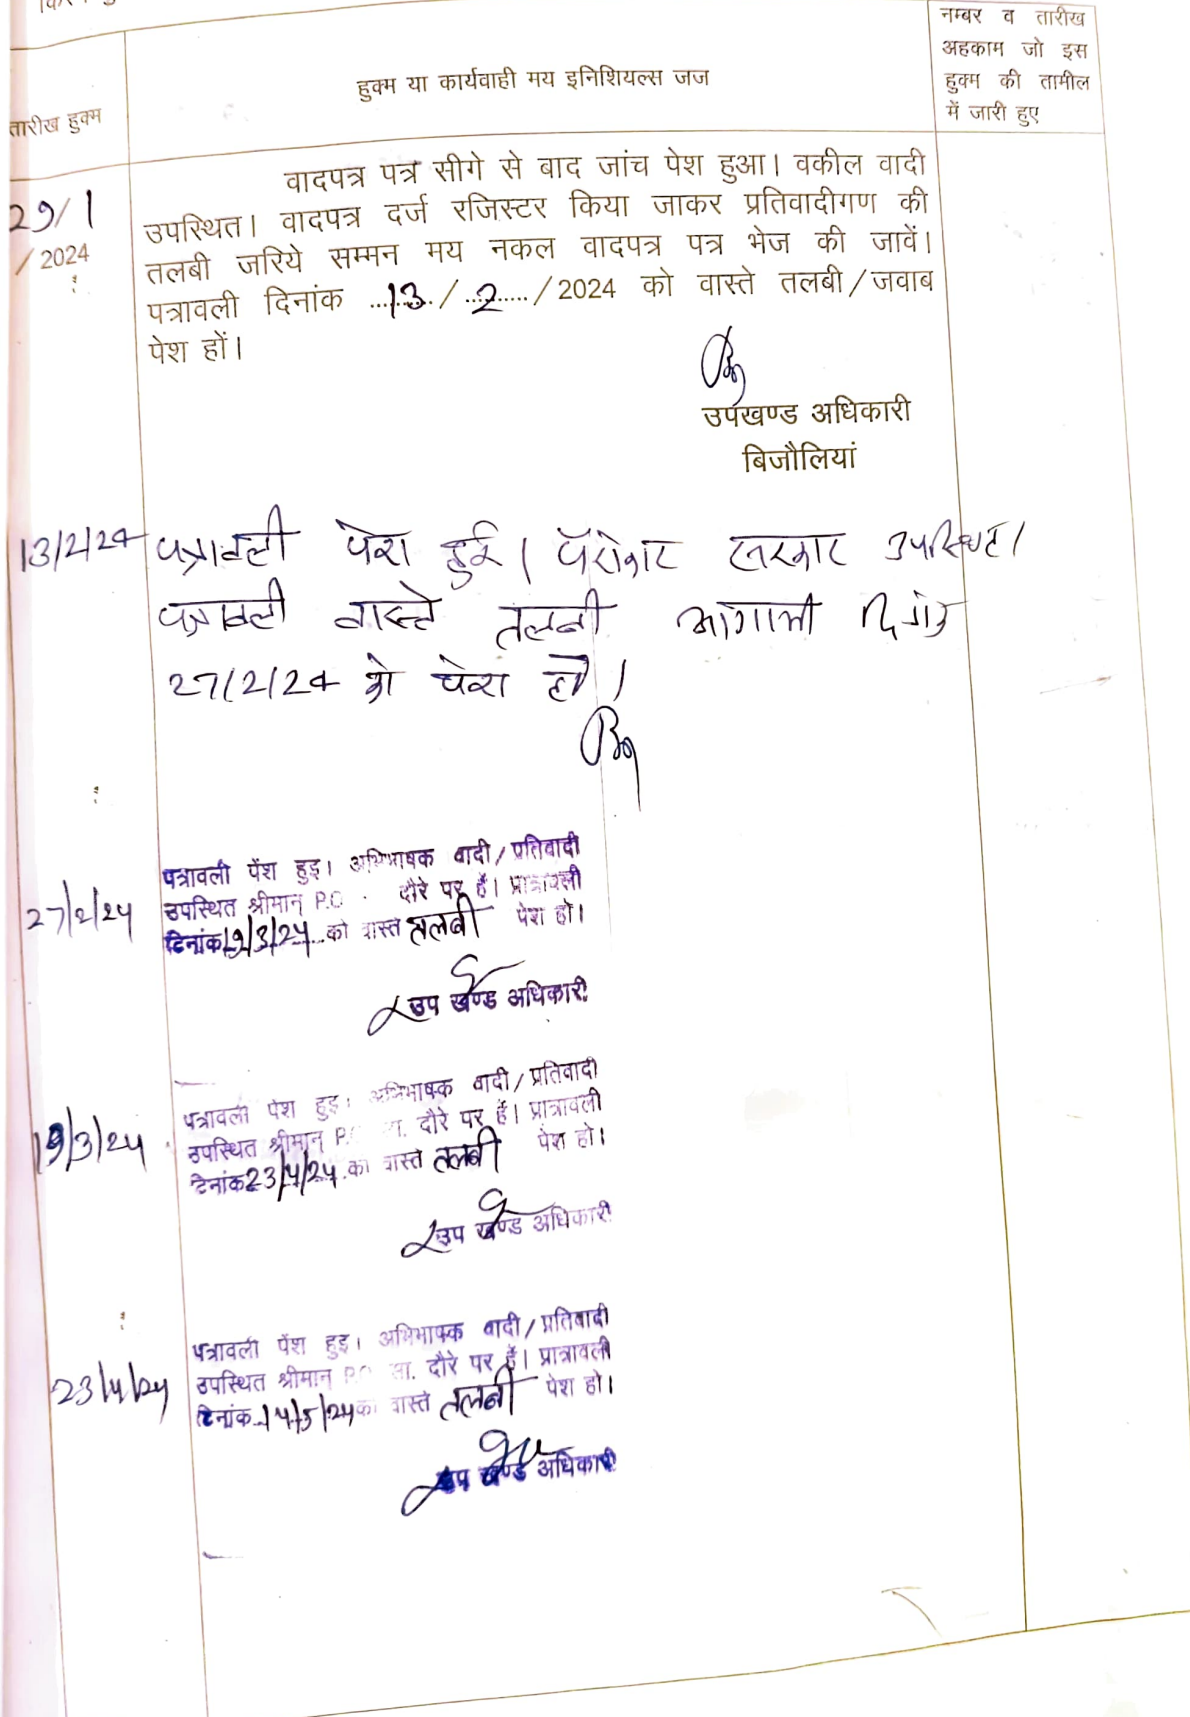 नम्बर व तारीख
अहकाम जो इस
हुक्म की तामील
में जारी हुए
हुक्म या कार्यवाही मय इनिशियल्स जज
तारीख हुक्म
29/1
/2024
वादपत्र पत्र सीगे से बाद जांच पेश हुआ। वकील वादी
उपस्थित। वादपत्र दर्ज रजिस्टर किया जाकर प्रतिवादीगण की
तलबी जरिये सम्मन मय नकल वादपत्र पत्र भेज की जावें।
पत्रावली दिनांक ..13../..2..../2024 को वास्ते तलबी/जवाब
पेश हों।
उपखण्ड अधिकारी
बिजौलियां
13/2/24 पत्रावली पेश हुई। पॅरोकार सरकार उपस्थित।
पत्रावली वास्ते तलबी आगामी
27/2/24 को पेश हो।
27/2/24
पत्रावली पेंश हुइ। अभिभाषक वादी/प्रतिवादी
उपस्थित श्रीमान् P.O. दौरे पर हैं। प्रात्रावली
दिनांक 19/3/24 को वास्ते तलबी पेश हो।
उप खण्ड अधिकारी
19/3/24
पत्रावली पेश हुइ। अभिभाषक वादी/प्रतिवादी
उपस्थित श्रीमान् P. सा. दौरे पर हैं। प्रात्रावली
दिनांक 23/4/24 को वास्ते तलबी पेश हो।
उप खण्ड अधिकारी
23/4/24
पत्रावली पेंश हुइ। अभिभाषक वादी/प्रतिवादी
उपस्थित श्रीमान् P.O सा. दौरे पर हैं। प्रात्रावली
दिनांक 14/5/24 को वास्ते तलबी पेश हो।
उप खण्ड अधिकारी